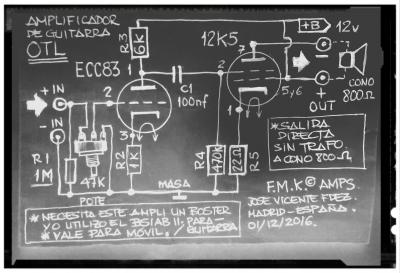 AMPLIFICADOR
DE GUITARRA
OTL
R3
6K
12K5
+B
12v
ECC83
1
2
3
C1
100nf
2
7
1
5,6
CONO
800Ω
+
OUT
+ IN
- IN
R1
1M
47K
POTE
R2
1K
R4
470K
22Ω
R5
MASA
*SALIDA
DIRECTA
SIN TRAFO
A CONO 800Ω
F.M.K© AMPS.
JOSE VICENTE FDEZ.
MADRID-ESPAÑA.
01/12/2016.
*NECESITA ESTE AMPLI UN BOSTER
Y/O UTILIZO EL
PARA
*VALE PARA MÓVIL. / GUITARRA